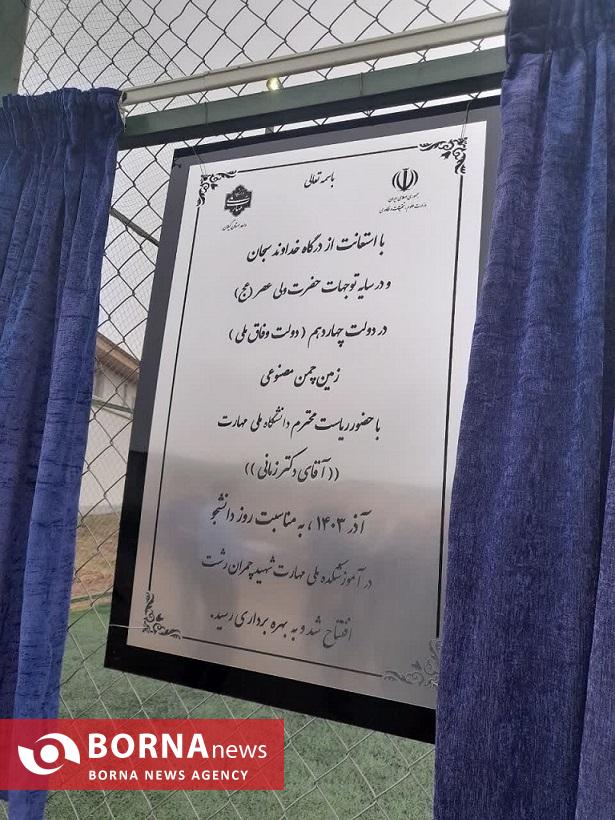 باسمه تعالی
جمهوری اسلامی ایران
وزارت علوم، تحقیقات و فناوری
واحد استان گیلان
با استعانت از درگاه خداوند سبحان
و در سایه توجهات حضرت ولی عصر (عج)
در دولت چهاردهم (دولت وفاق ملی)
زمین چمن مصنوعی
با حضور ریاست محترم دانشگاه ملی مهارت
((آقای دکتر زمانی))
آذر ۱۴۰۳، به مناسبت روز دانشجو
در آموزشکده ملی مهارت شهید چمران رشت
افتتاح شد و به بهره برداری رسید.
BORNA news
BORNA NEWS AGENCY